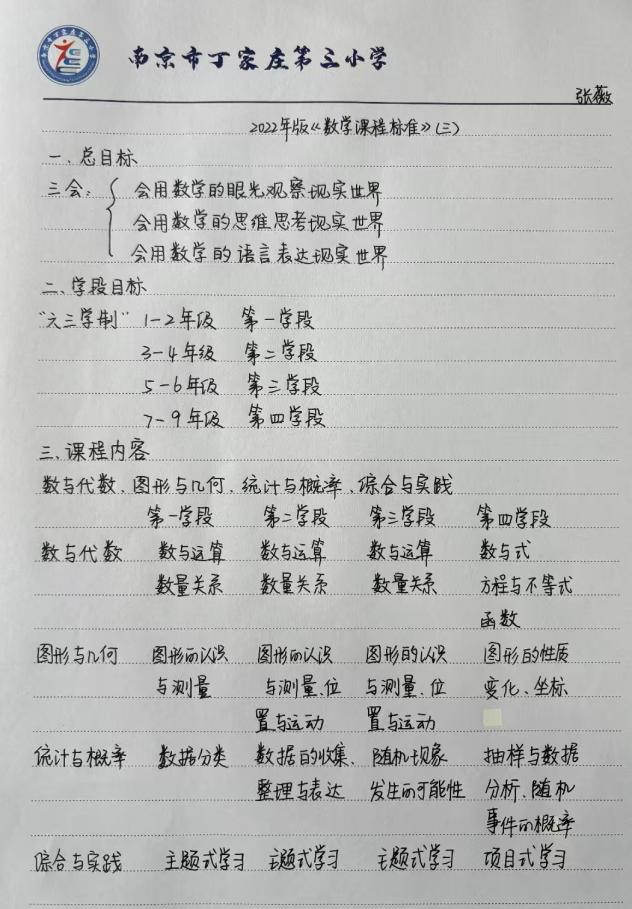 南京市丁家庄第三小学
张薇
2022年版《数学课程标准》(三)
一、总目标
三会: 会用数学的眼光观察现实世界
会用数学的思维思考现实世界
会用数学的语言表达现实世界
二、学段目标
"六三学制" 1-2年级 第一学段
3-4年级 第二学段
5-6年级 第三学段
7-9年级 第四学段
三、课程内容
数与代数、图形与几何、统计与概率、综合与实践
第一学段 第二学段 第三学段 第四学段
数与代数 数与运算 数与运算 数与运算 数与式
数量关系 数量关系 数量关系 方程与不等式
函数
图形与几何 图形的认识 图形的认识 图形的认识 图形的性质
与测量 与测量、位 与测量、位 变化、坐标
置与运动 置与运动
统计与概率 数据分类 数据的收集、 随机现象 抽样与数据
整理与表达 发生的可能性 分析、随机
事件的概率
综合与实践 主题式学习 主题式学习 主题式学习 项目式学习